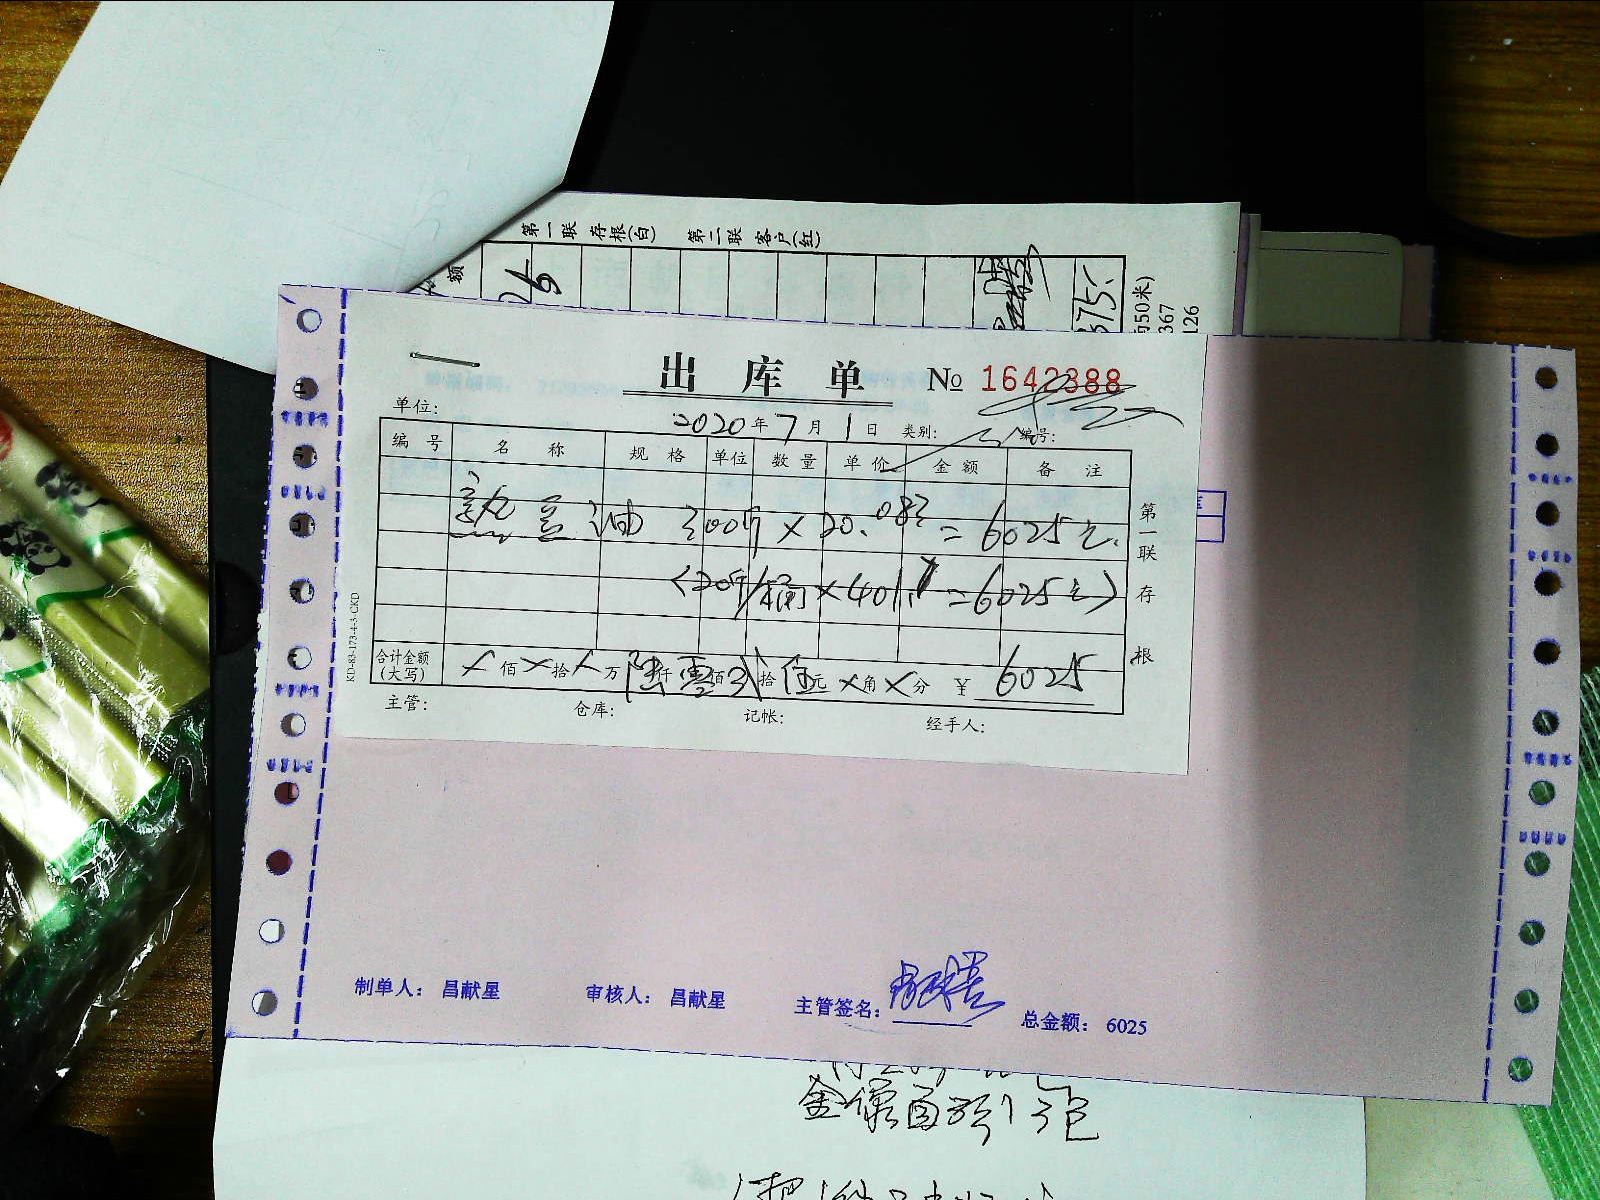 第一联 存根(白) 第二联 客户(红)
额
375.
50米)
367
126
出库单 № 1642388
单位: 2020年7月1日 类别: 编号:
编号 名称 规格 单位 数量 单价 金额 备注
油 300斤 × 20.083 = 6025元.
(20斤/桶 × 401. = 6025元)
合计金额(大写) ×佰×拾×万陆仟零佰贰拾伍元×角×分 ¥ 6025
主管: 仓库: 记帐: 经手人:
第一联 存根
KD-83-173-4-3-CKD
制单人: 昌献星 审核人: 昌献星 主管签名: 总金额: 6025
金像面粉1包